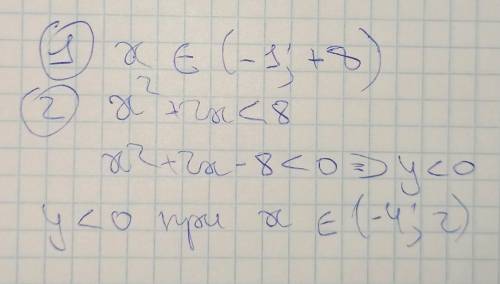 1 x ∈ (-1; +8)
2 x² + 2x < 8
x² + 2x - 8 < 0 => y < 0
y < 0 при x ∈ (-4; 2)